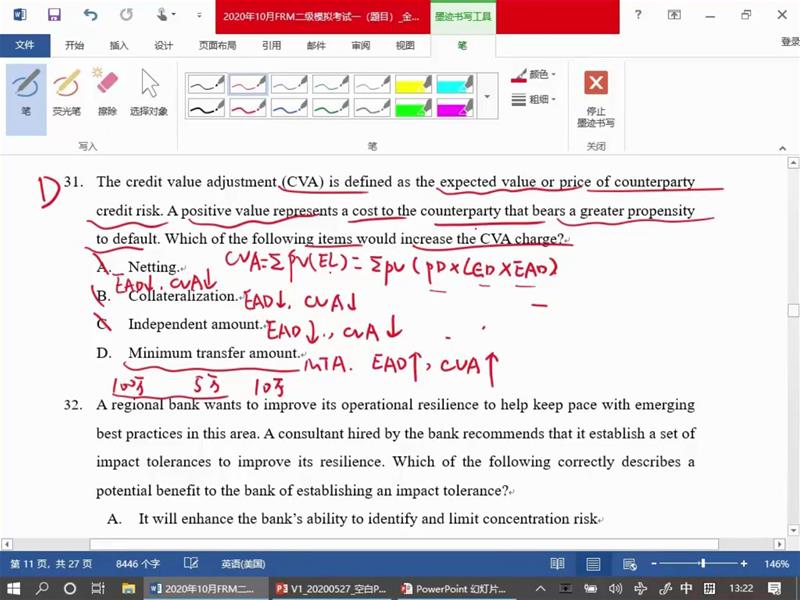 2020年10月FRM二级模拟考试一（题目）_全...
墨迹书写工具
登录
文件 开始 插入 设计 页面布局 引用 邮件 审阅 视图 笔
笔 荧光笔 擦除 选择对象
颜色
粗细
停止
墨迹书写
写入 笔 关闭
D 31. The credit value adjustment (CVA) is defined as the expected value or price of counterparty
credit risk. A positive value represents a cost to the counterparty that bears a greater propensity
to default. Which of the following items would increase the CVA charge?
A. Netting. CVA=Σ PV(EL) = Σ PV (PD×LGD×EAD)
EAD↓, CVA↓
B. Collateralization. EAD↓. CVA↓
C. Independent amount. EAD↓, CVA↓
D. Minimum transfer amount. MTA. EAD↑, CVA↑
100万 5万 10万
32. A regional bank wants to improve its operational resilience to help keep pace with emerging
best practices in this area. A consultant hired by the bank recommends that it establish a set of
impact tolerances to improve its resilience. Which of the following correctly describes a
potential benefit to the bank of establishing an impact tolerance?
A. It will enhance the bank's ability to identify and limit concentration risk
第 11 页，共 27 页 8446 个字 英语(美国) 146%
2020年10月FRM二... V1_20200527_空白P... PowerPoint 幻灯片... 中 13:22